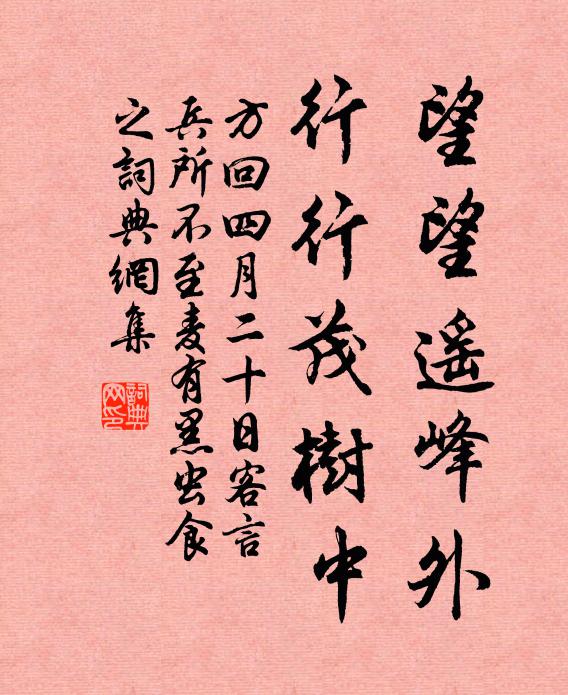 望望遥峰外
行行茂樹中
方回四月二十日客言
兵所不至麦有黑虫食
之詞典網集
詞典
网印